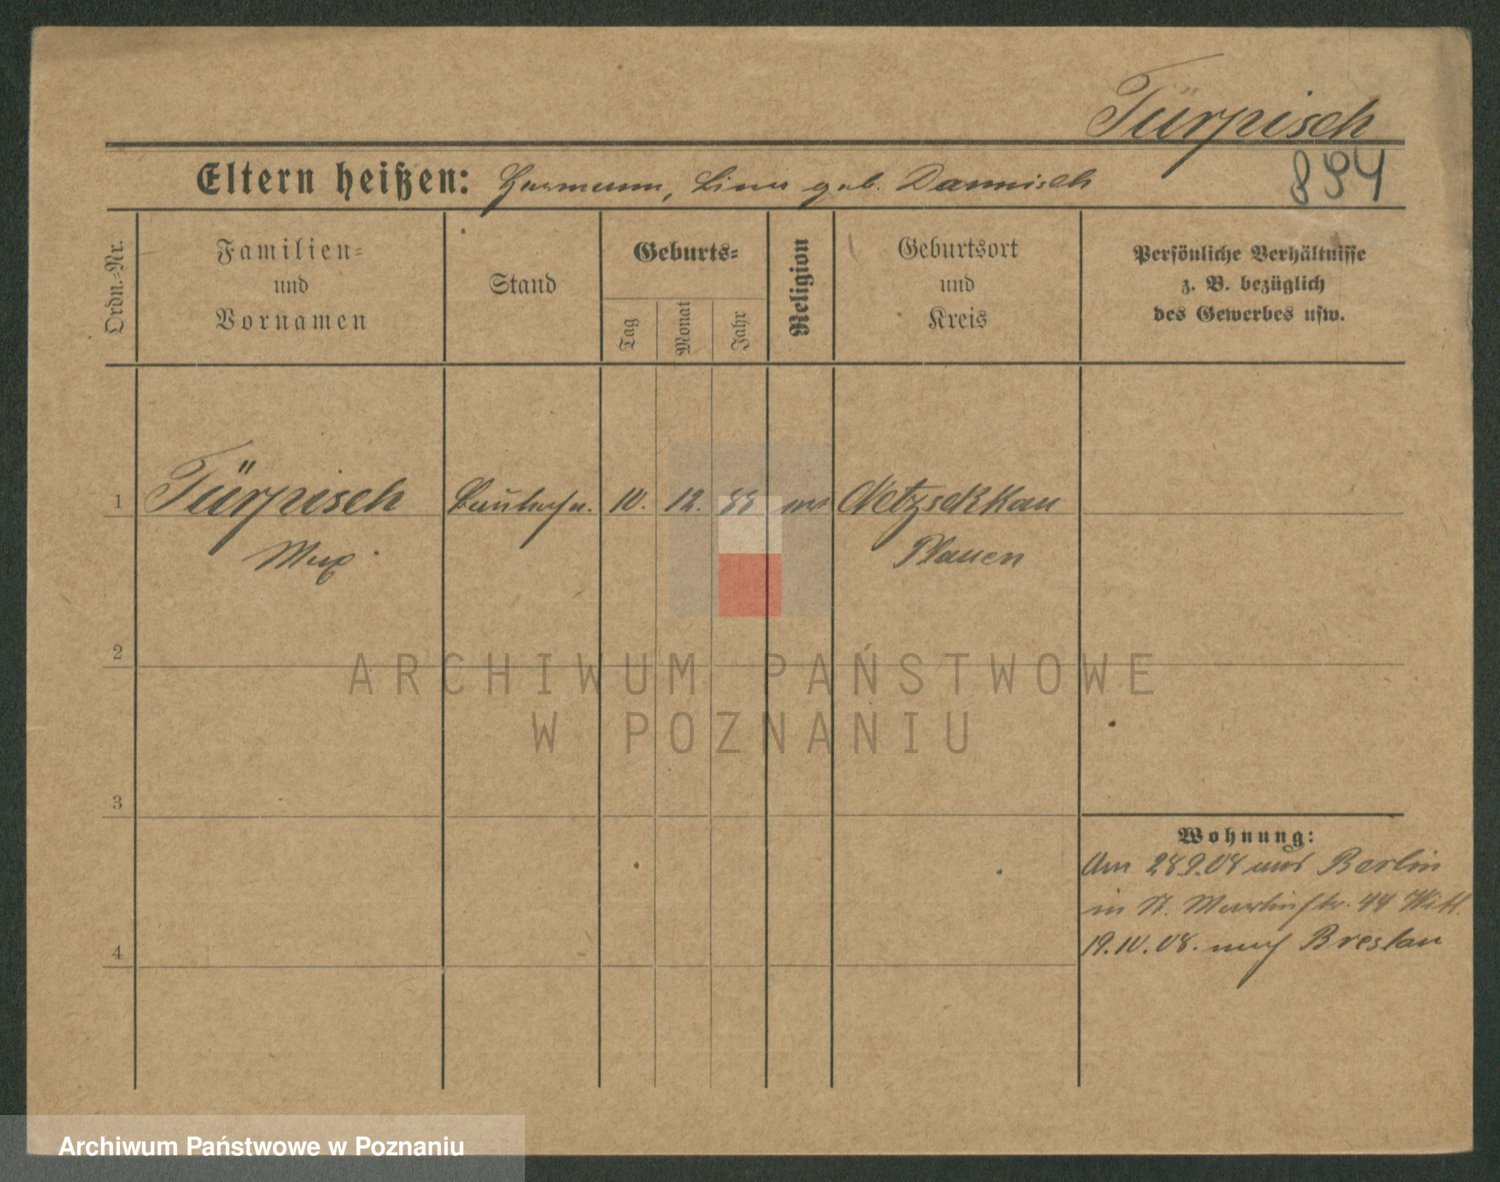 Türpisch
894
Eltern heißen: Hermann, Lina geb. Dannisch
Ordn.-Nr.
Familien=
und
Vornamen
Stand
Geburts=
Tag
Monat
Jahr
Religion
Geburtsort
und
Kreis
Persönliche Verhältnisse
z. B. bezüglich
des Gewerbes usw.
1 Türpisch 10. 12. 88 Netzschkau
Max Plauen
2
ARCHIWUM PAŃSTWOWE
W POZNANIU
3
Wohnung:
Am 28.9.08 aus Berlin
in St. Martinstr. 44
4
19.10.08. nach Breslau
Archiwum Państwowe w Poznaniu